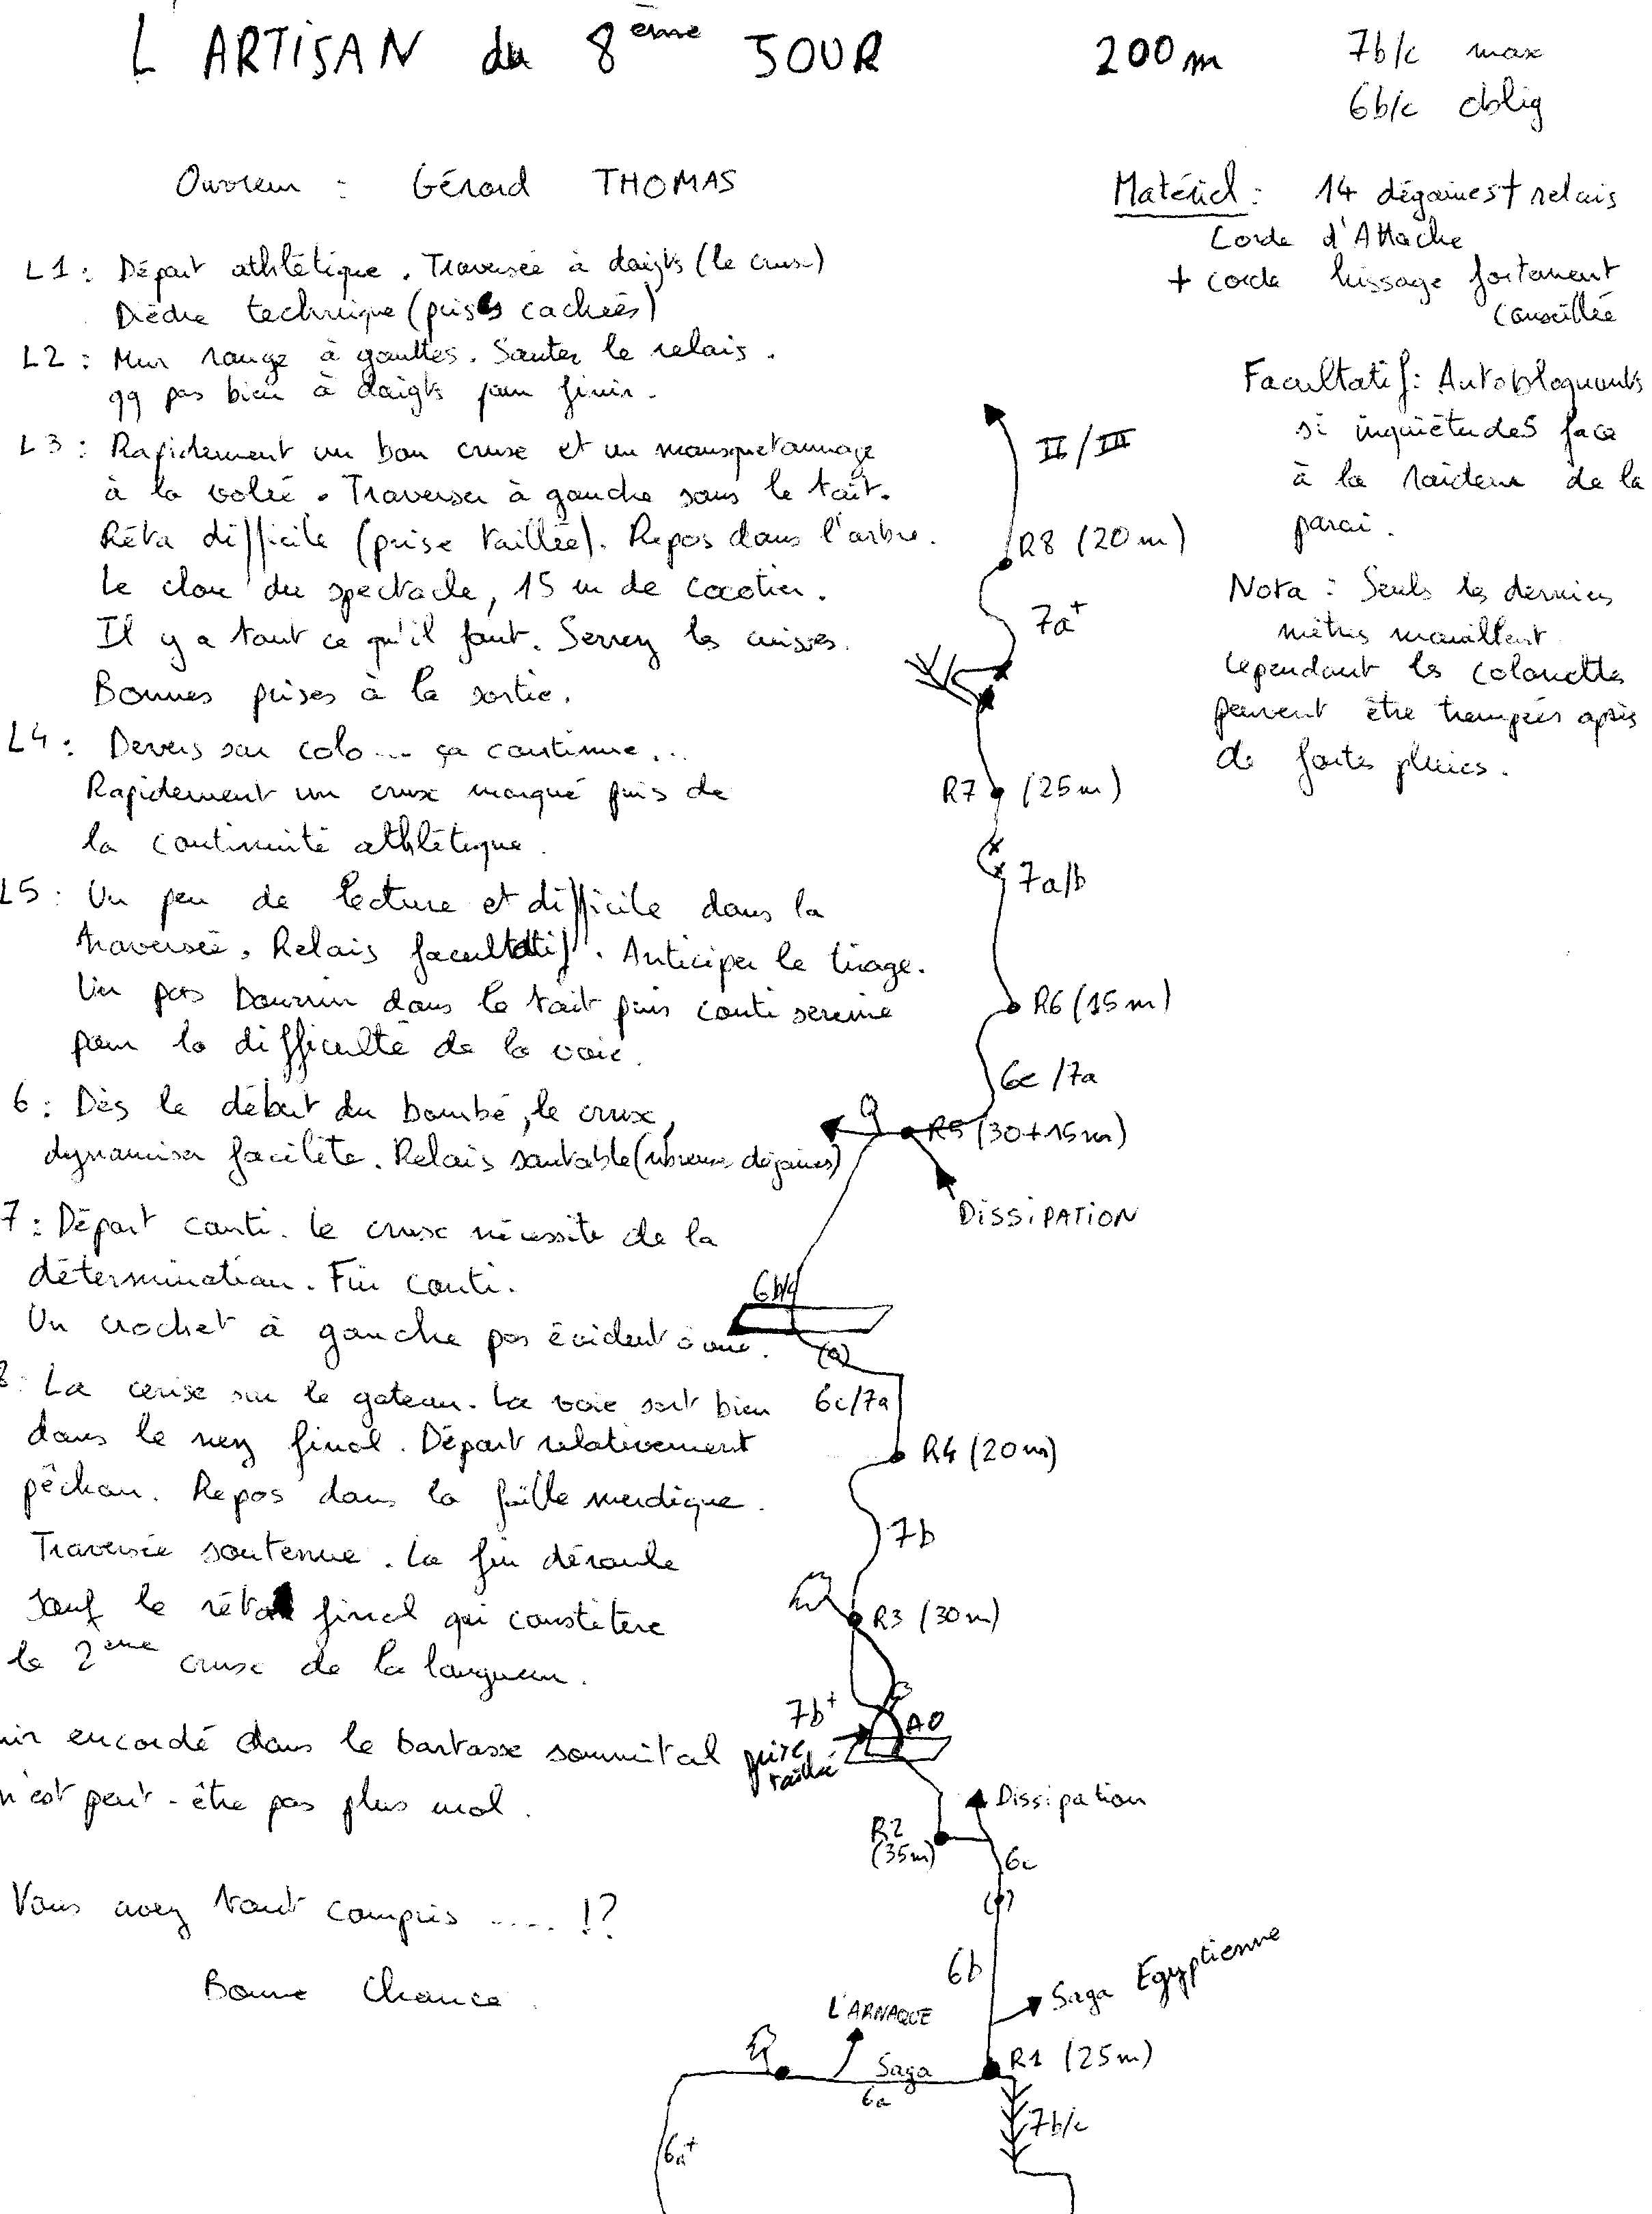 L'ARTISAN du 8ème JOUR 200m
7b/c max
6b/c oblig
Ouvreur : Gérard THOMAS
Matériel : 14 dégaines + relais
Corde d'Attache
+ corde hissage fortement
conseillée
Facultatif : Autobloquants
si inquiétudes face
à la raideur de la
paroi.
Nota : Seuls les derniers
mètres mouillent
cependant les colonettes
peuvent être trempées après
de fortes pluies.
L1 : Départ athlétique. Traversée à doigts (le crux)
Dièdre technique (prises cachées)
L2 : Mur rouge à gouttes. Sauter le relais.
qq pas bien à doigts pour finir.
L3 : Rapidement un bon crux et un mousquetonnage
à la volée. Traverser à gauche sous le toit.
Réta difficile (prise taillée). Repos dans l'arbre.
Le clou du spectacle, 15 m de cocotier.
Il y a tout ce qu'il faut. Serrez les cuisses.
Bonnes prises à la sortie.
L4 : Devers sur colo... ça continue...
Rapidement un crux marqué puis de
la continuité athlétique.
L5 : Un peu de lecture et difficile dans la
traversée. Relais facultatif. Anticiper le tirage.
Un pas bourrin dans le toit puis conti sereine
pour la difficulté de la voie.
6 : Dès le début du bombé, le crux,
dynamiser facilite. Relais sautable (nbreuses dégaines)
7 : Départ conti. Le crux nécessite de la
détermination. Fin conti.
Un crochet à gauche pas évident à vue.
8 : La cerise sur le gateau. La voie sort bien
dans le nez final. Départ relativement
pêchou. Repos dans la faille merdique.
Traversée soutenue. La fin déroule
sauf le réta final qui constitere
le 2ème crux de la longueur.
encordé dans le bartasse sommital
n'est peut-être pas plus mal.
Vous avez tout compris ..... !?
Bonne Chance.
II/III
R8 (20m)
7a+
R7 (25m)
7a/b
R6 (15m)
6c/7a
R5 (30+15m)
DISSIPATION
6b/c
6c/7a
R4 (20m)
7b
R3 (30m)
7b+
A0
prise
taillée
Dissipation
R2
(35m)
6c
6b
Saga Egyptienne
L'ARNAQUE
R1 (25m)
Saga
6a
7b/c
6a+